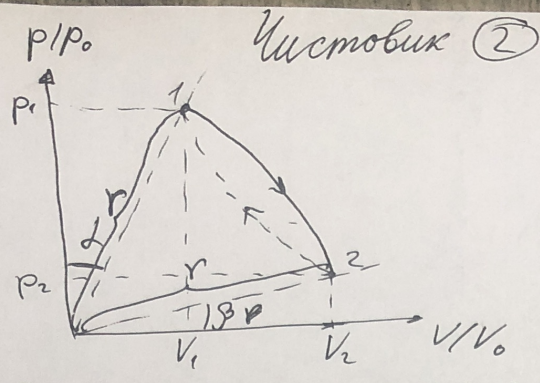 p/p₀ Чистовик 2
1
p₁
r
α
r
2
p₂
β
V₁ V₂ V/V₀